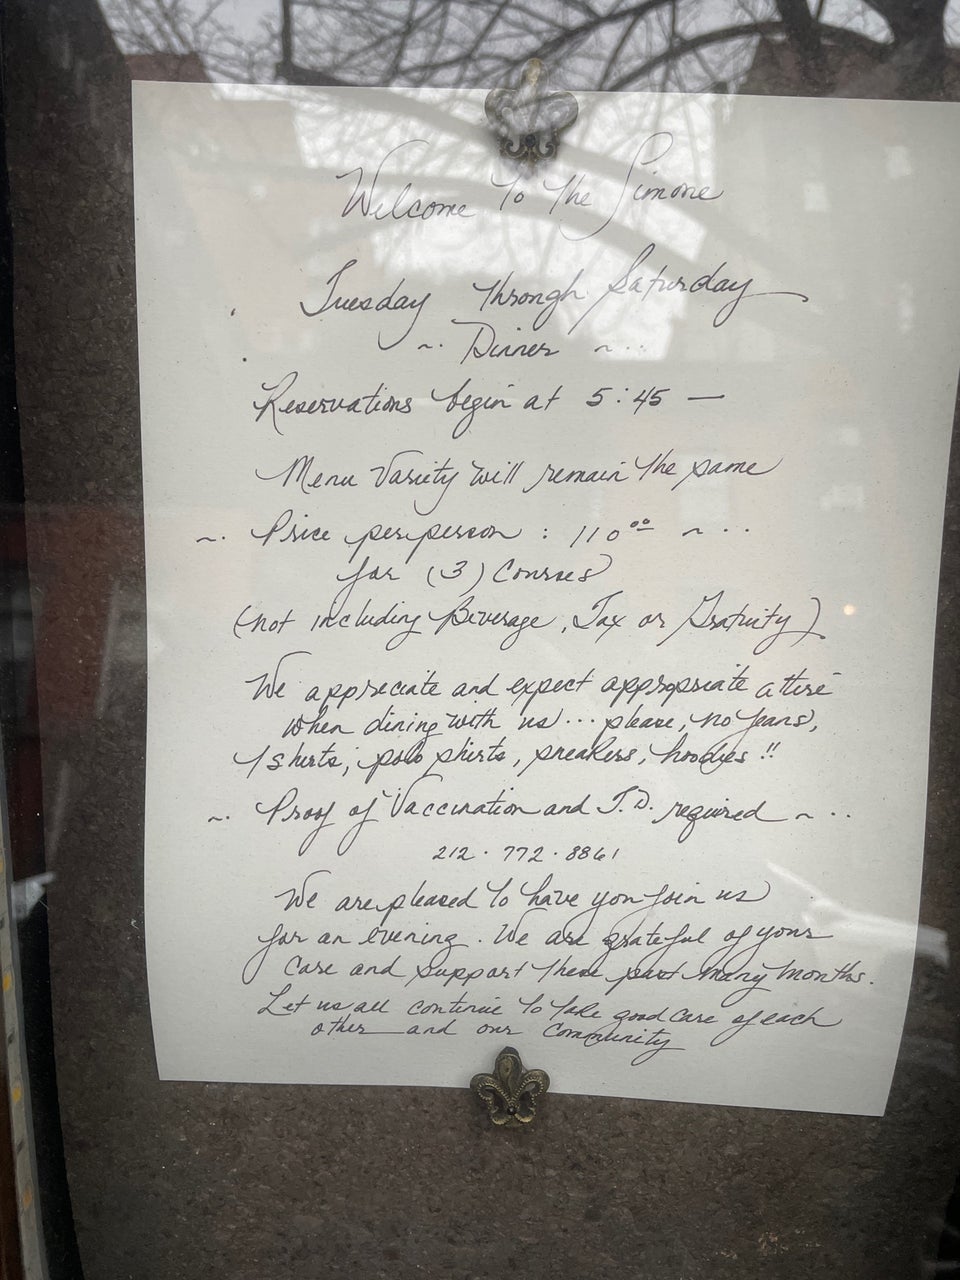 Welcome to the Simone
Tuesday through Saturday
~. Dinner ~ ..
Reservations begin at 5:45 —
Menu Variety will remain the same
~. Price per person : 110⁰⁰ ~ ..
for (3) Courses
(not including Beverage, Tax or Gratuity)
We appreciate and expect appropriate attire
when dining with us ... please, no jeans,
T shirts, polo shirts, sneakers, hoodies !!
~. Proof of Vaccination and I.D. required ~ ..
212 . 772 . 8861
We are pleased to have you join us
for an evening. We are grateful of your
care and support these past many months.
Let us all continue to take good care of each
other and our Community